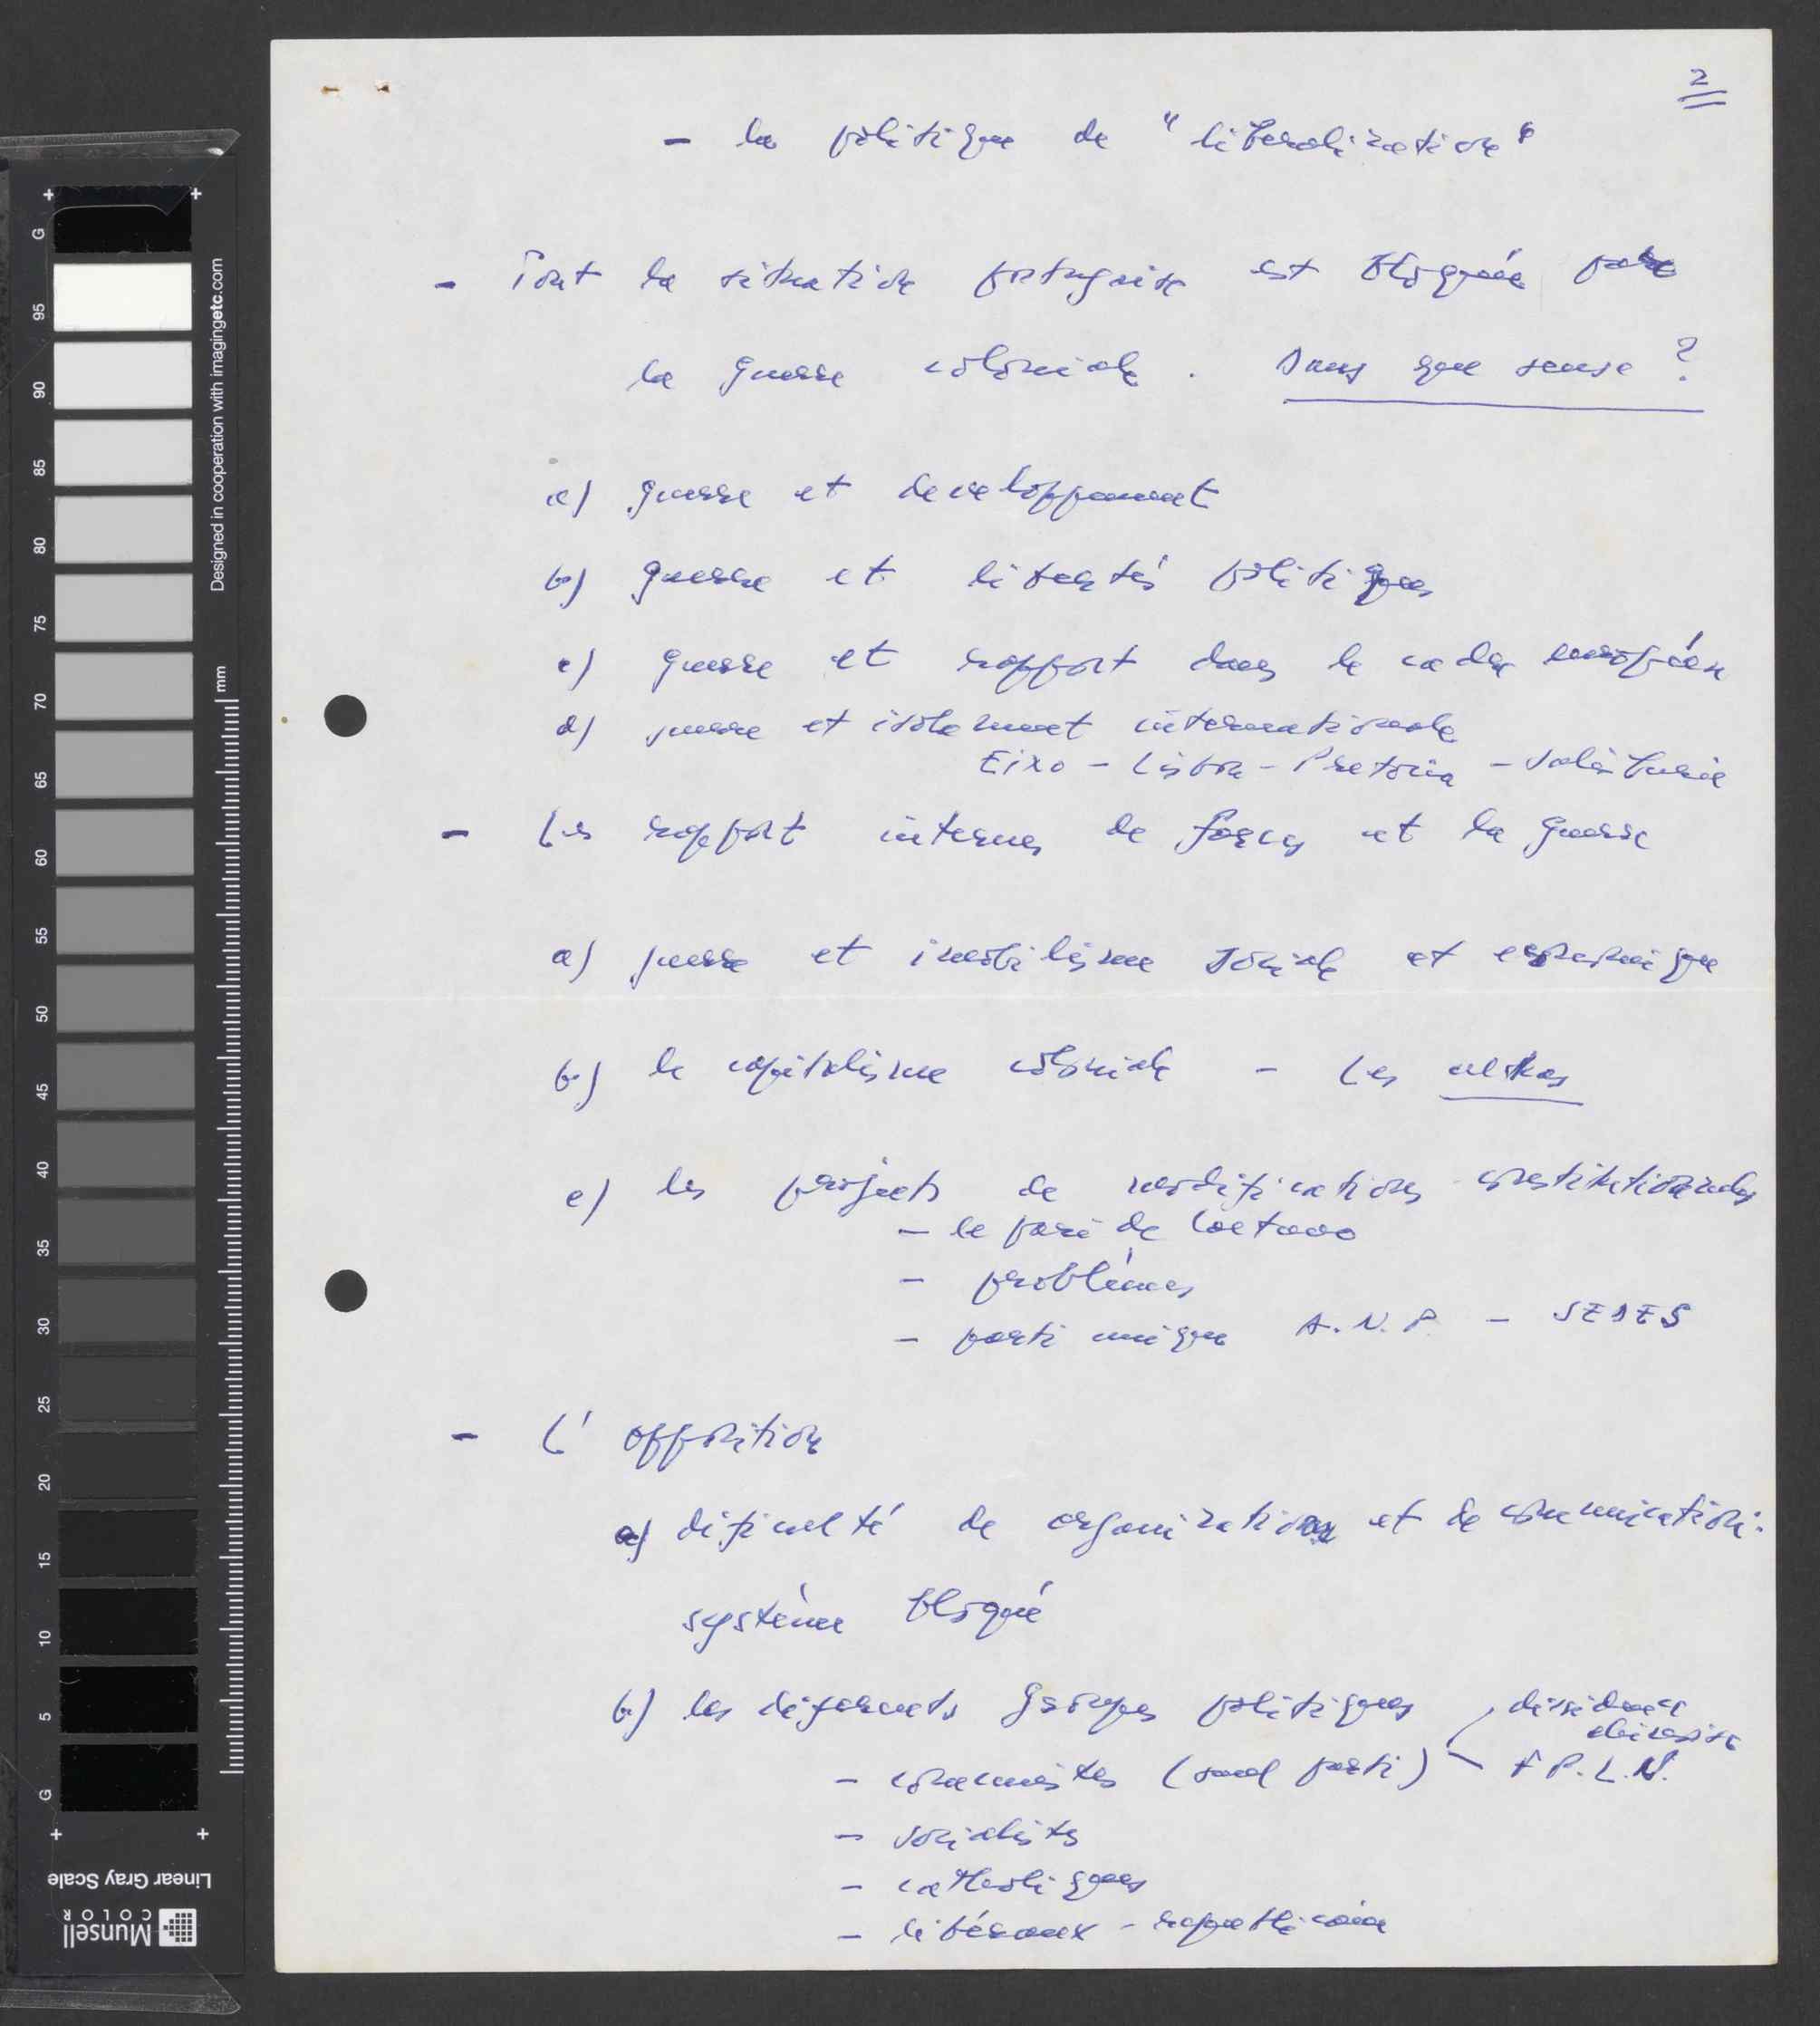 2
- la politique de "liberalization"
- Tout la situation portugaise est bloquée par
la guerre coloniale. Dans que sense ?
a) guerre et developpement
b) guerre et libertés politiques
c) guerre et rapport dans le cadre européen
d) guerre et isolement internationale
Eixo - Lisboa - Pretoria - Salisburia
- Les rapport internes de forces et la guerre
a) guerre et imobilisme sociale et economique
b) le capitalisme coloniale - Les ultras
c) les projects de modifications constitutionnales
- le pari de Caetano
- problèmes
- parti unique A.N.P. - SEDES
- L'opposition
a) dificulté de organization et de communication:
système bloqué
b) les diferents groupes politiques
dissidence
chinoise
- comunistes (seul parti) - F P.L.N.
- socialistes
- catholiques
- libéraux - republicain
Designed in cooperation with imagingetc.com
mm
G 95 90 85 80 75 70 65 60 55 50 45 40 35 30 25 20 15 10 5 G
Linear Gray Scale
Munsell
COLOR